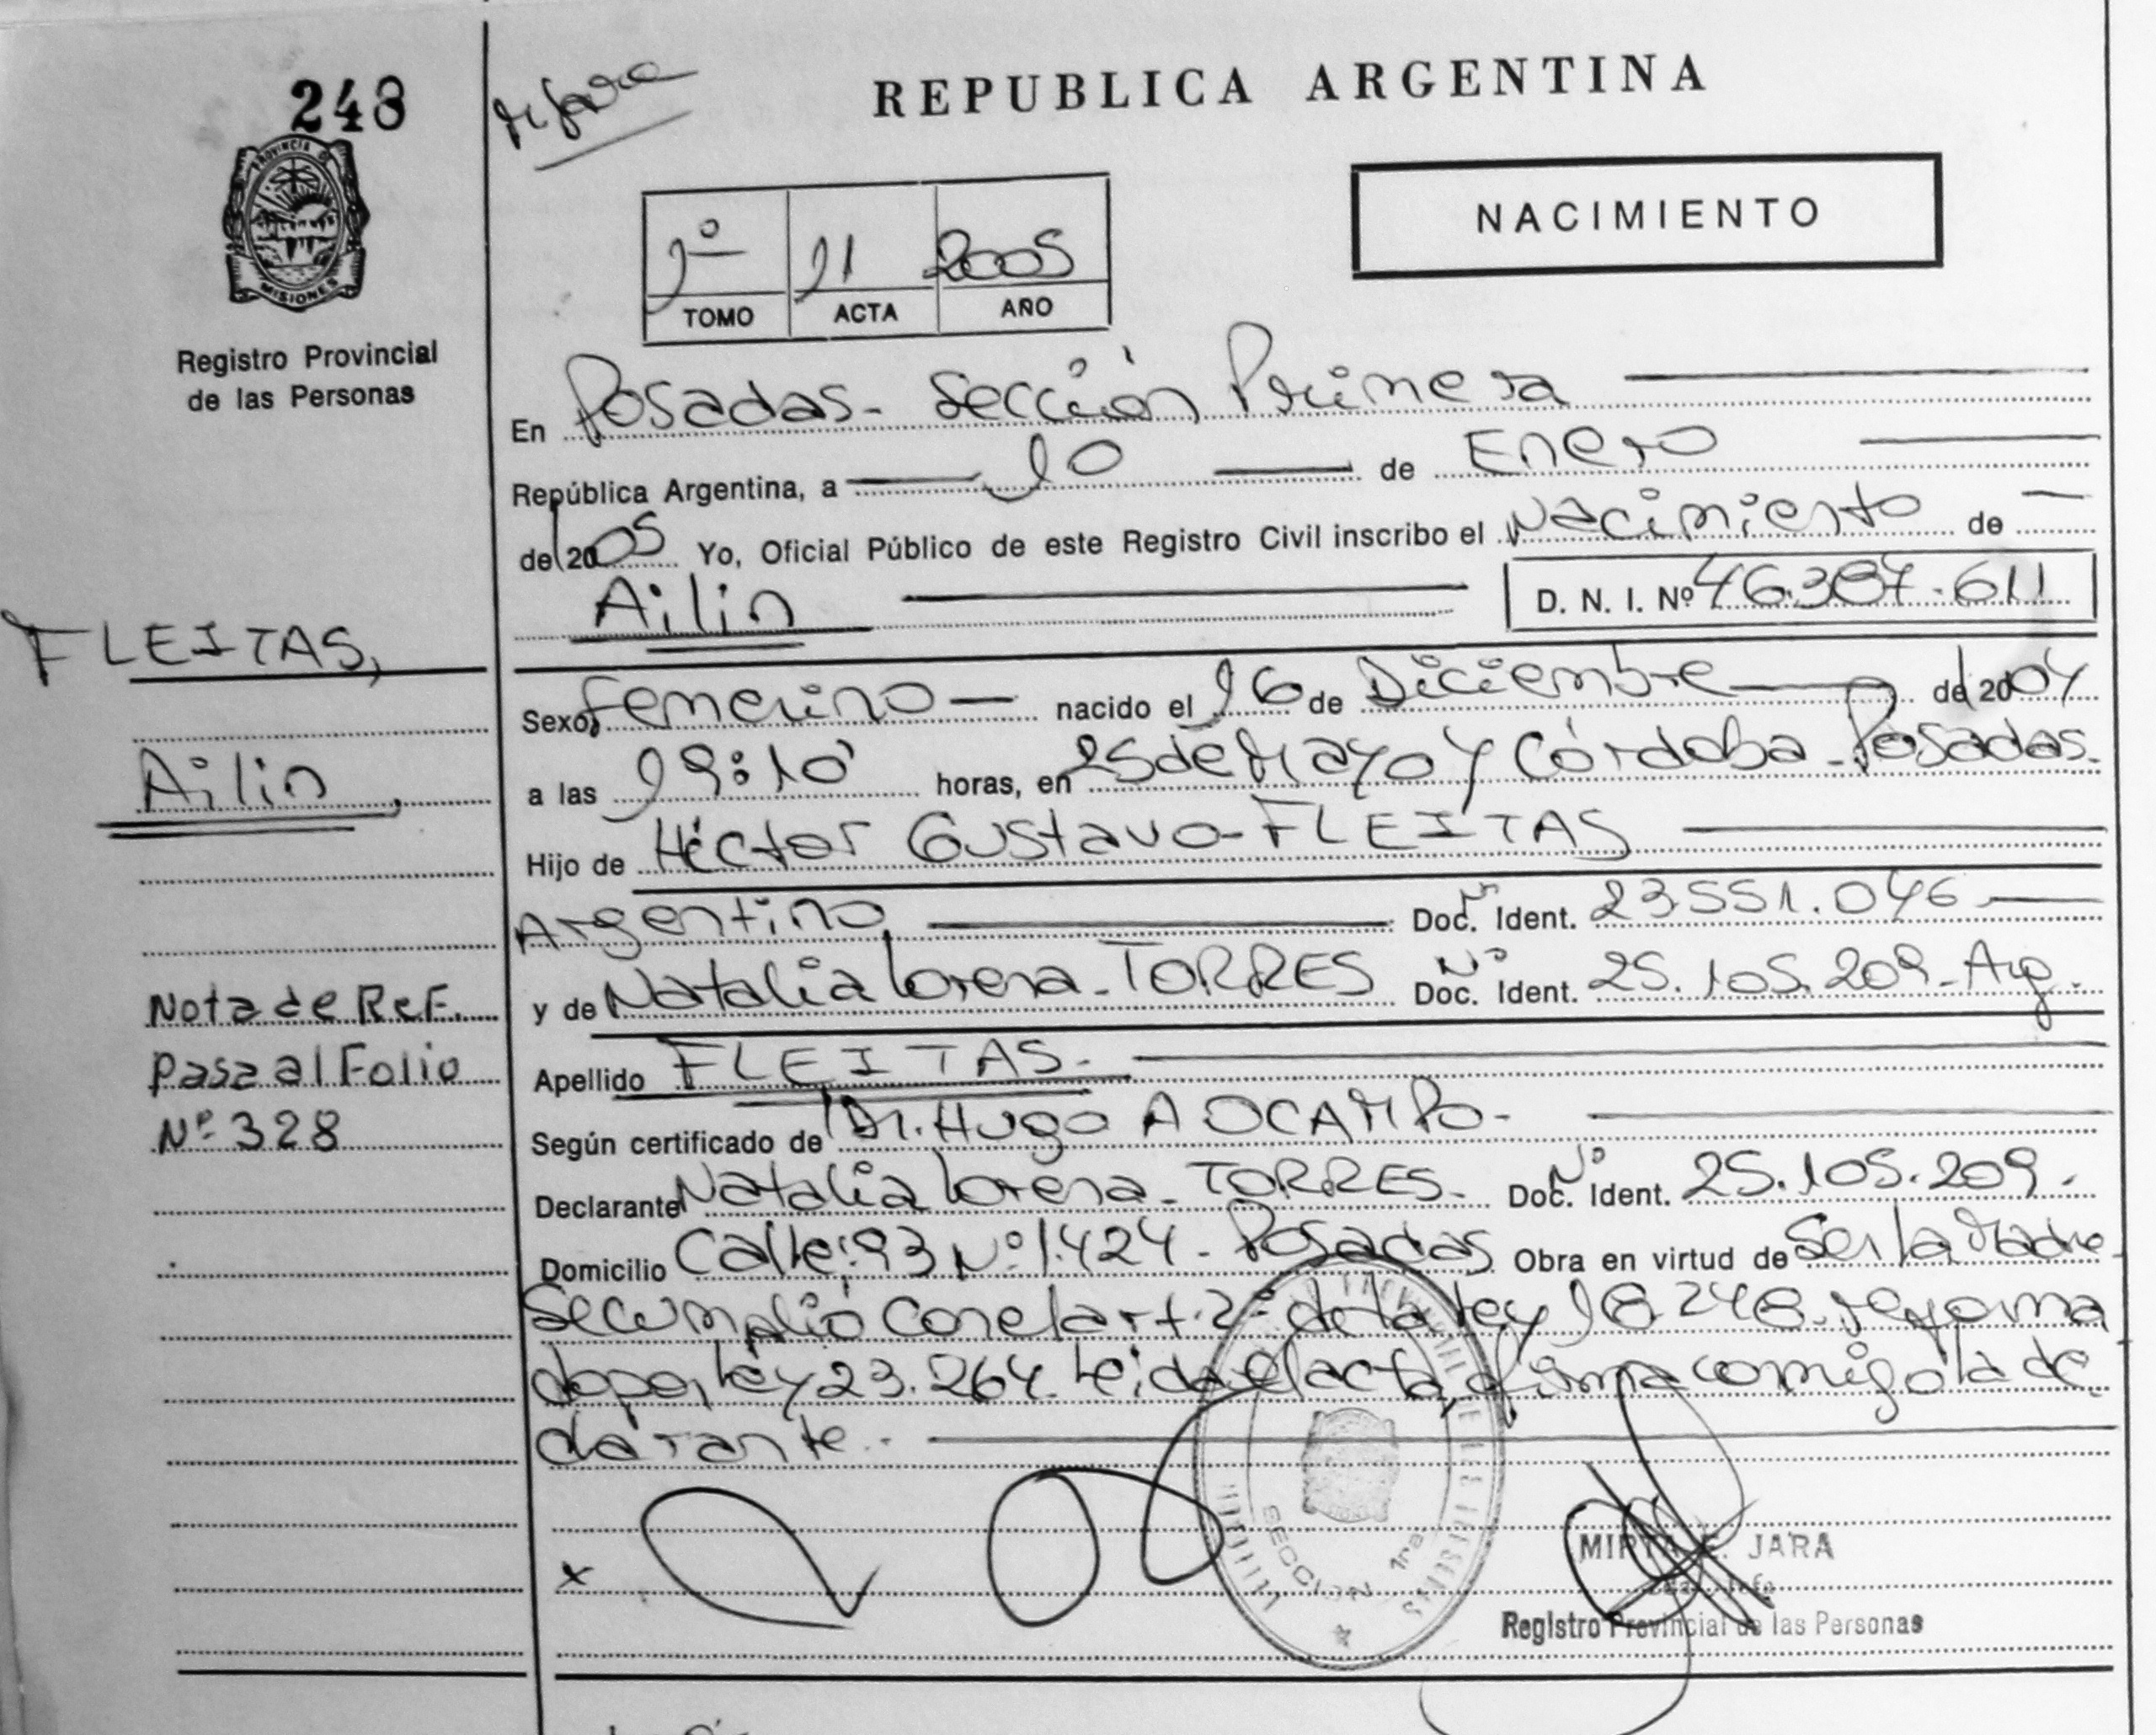 248
PROVINCIA D
MISIONES
Registro Provincial
de las Personas
REPUBLICA ARGENTINA
NACIMIENTO
1º 11 2005
TOMO ACTA AÑO
En Posadas - Sección Primera
República Argentina, a 10 de Enero
del 2005 Yo, Oficial Público de este Registro Civil inscribo el Nacimiento de
Ailin D. N. I. Nº 46.387.611
FLEITAS,
Sexo, femenino nacido el 16 de Diciembre del 2004
Ailin,
a las 19:10' horas, en 25 de Mayo y Córdoba - Posadas.
Hijo de Héctor Gustavo - FLEITAS
Argentino, Doc. Nº Ident. 23.551.046
y de Natalia Lorena - TORRES Doc. Nº Ident. 25.105.209 - Arg.
Nota de Ref.
Pasa al Folio
Nº 328
Apellido FLEITAS.-
Según certificado de Dr. Hugo A OCAMPO -
Declarante Natalia Lorena - TORRES - Doc. Nº Ident. 25.105.209.
Domicilio Calle: 93 Nº 1.424 - Posadas Obra en virtud de ser la Madre
Se cumplió con el art. 2º de la ley 18.248 - reforma
do por ley 23.264. Leida el acta, firma comigo la de
clarante.-
x
SECCION 1ra
MIRTA E. JARA
Registro Provincial de las Personas